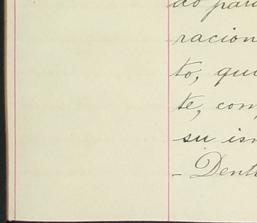 do para
racion
to, qui
te, com
su ism
- Denh